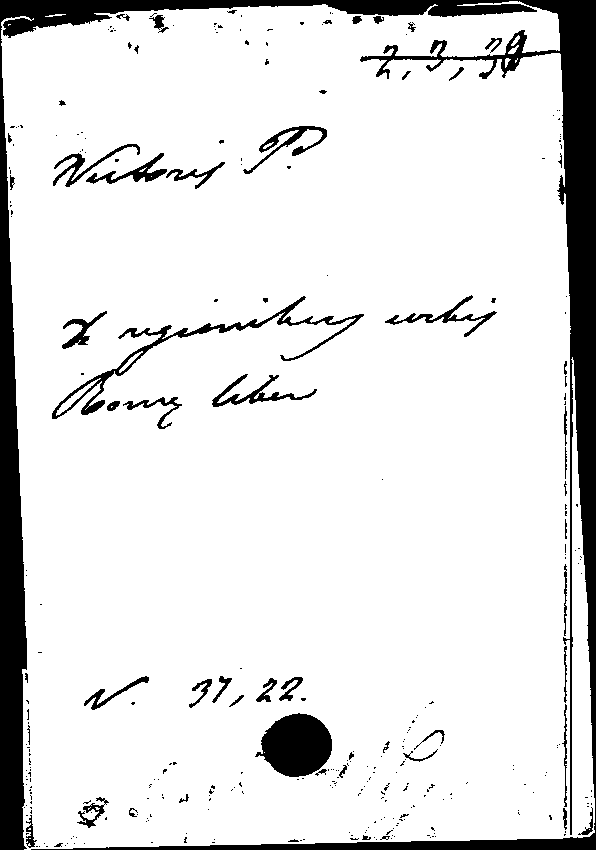 2, 3, 39
Victoris P.
De regionibus urbis
Romę liber
N. 37, 22.